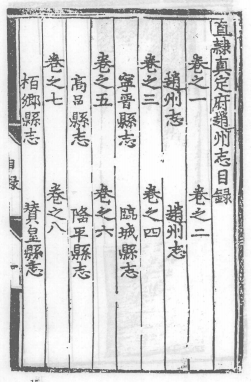 直隸真定府趙州志目錄
卷之一 卷之二
趙州志 趙州志
卷之三 卷之四
寧晉縣志 臨城縣志
卷之五 卷之六
高邑縣志 隆平縣志
卷之七 卷之八
栢鄉縣志 贊皇縣志
目錄
一